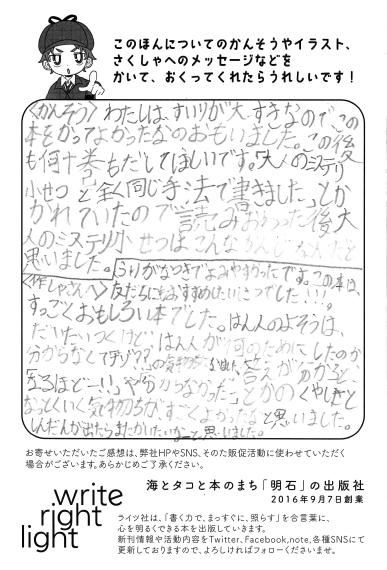 このほんについてのかんそうやイラスト、
さくしゃへのメッセージなどを
かいて、おくってくれたらうれしいです！
〈かんそう〉わたしは、すいりが大すきなので、この
本をかってよかったなのおもいました。この後
も何十巻もだしてほしいです。「大人のミステリ
小せつと全く同じ手法で書きました」とか
かれていたので読みおわった後大
人のミステリ小せつはこんなかんじなんだと
思いました。ふりがなつきでよみやすかったです。この本は、
〈作しゃさんへ〉友だちにもおすすめしたいとこつでした!!!。
すっごくおもしろい本でした。はん人のよそうは、
だいたいつくけど、はん人が何のためにしたのか
分からなくて の気持ちが 答えが分かると、
「なるほどー!!」や「分からなかった」とかのくやしさと
なっとくいく気持ちがすごくよかったなと思いました。
しんだんが出たらまたかいたいなーと思いました。
お寄せいただいたご感想は、弊社HPやSNS、そのた販促活動に使わせていただく
場合がございます。あらかじめご了承ください。
write
right
light
海とタコと本のまち「明石」の出版社
2016年9月7日創業
ライツ社は、「書く力で、まっすぐに、照らす」を合言葉に、
心を明るくできる本を出版していきます。
新刊情報や活動内容をTwitter、Facebook、note、各種SNSにて
更新しておりますので、よろしければフォローくださいませ。